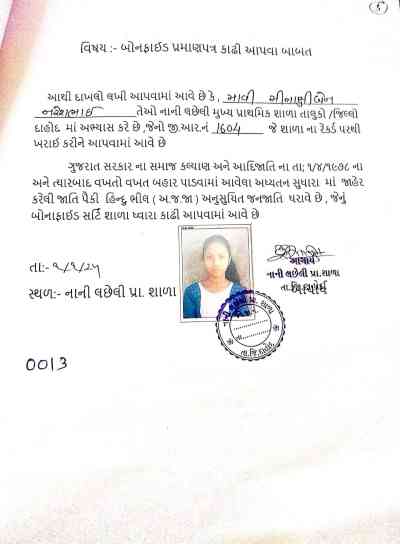 5
વિષય :- બોનફાઈડ પ્રમાણપત્ર કાઢી આપવા બાબત
આથી દાખલો લખી આપવામાં આવે છે કે, માવી મીનાક્ષીબેન
નરેશભાઈ તેઓ નાની લછેલી મુખ્ય પ્રાથમિક શાળા તાલુકો /જિલ્લો
દાહોદ માં અભ્યાસ કરે છે ,જેનો જી.આર.નં 1604 જે શાળા ના રેકર્ડ પરથી
ખરાઇ કરીને આપવામાં આવે છે
ગુજરાત સરકાર ના સમાજ કલ્યાણ અને આદિજાતિ ના તા; ૧/૪/૧૯૭૮ ના
અને ત્યારબાદ વખતો વખત બહાર પાડવામાં આવેલા અધ્યતન સુધારા માં જાહેર
કરેલી જાતિ પૈકી હિન્દુ ભીલ ( અ.જ.જા ) અનુસુચિત જનજાતિ ધરાવે છે , જેનું
બોનાફાઇડ સર્ટિ શાળા ધ્વારા કાઢી આપવામાં આવે છે
તા:- ૧/૧/૨૫
આચાર્ય
નાની લછેલી પ્રા. શાળા
સ્થળ:- નાની લછેલી પ્રા. શાળા
તા.જિ.દાહોદ
0013